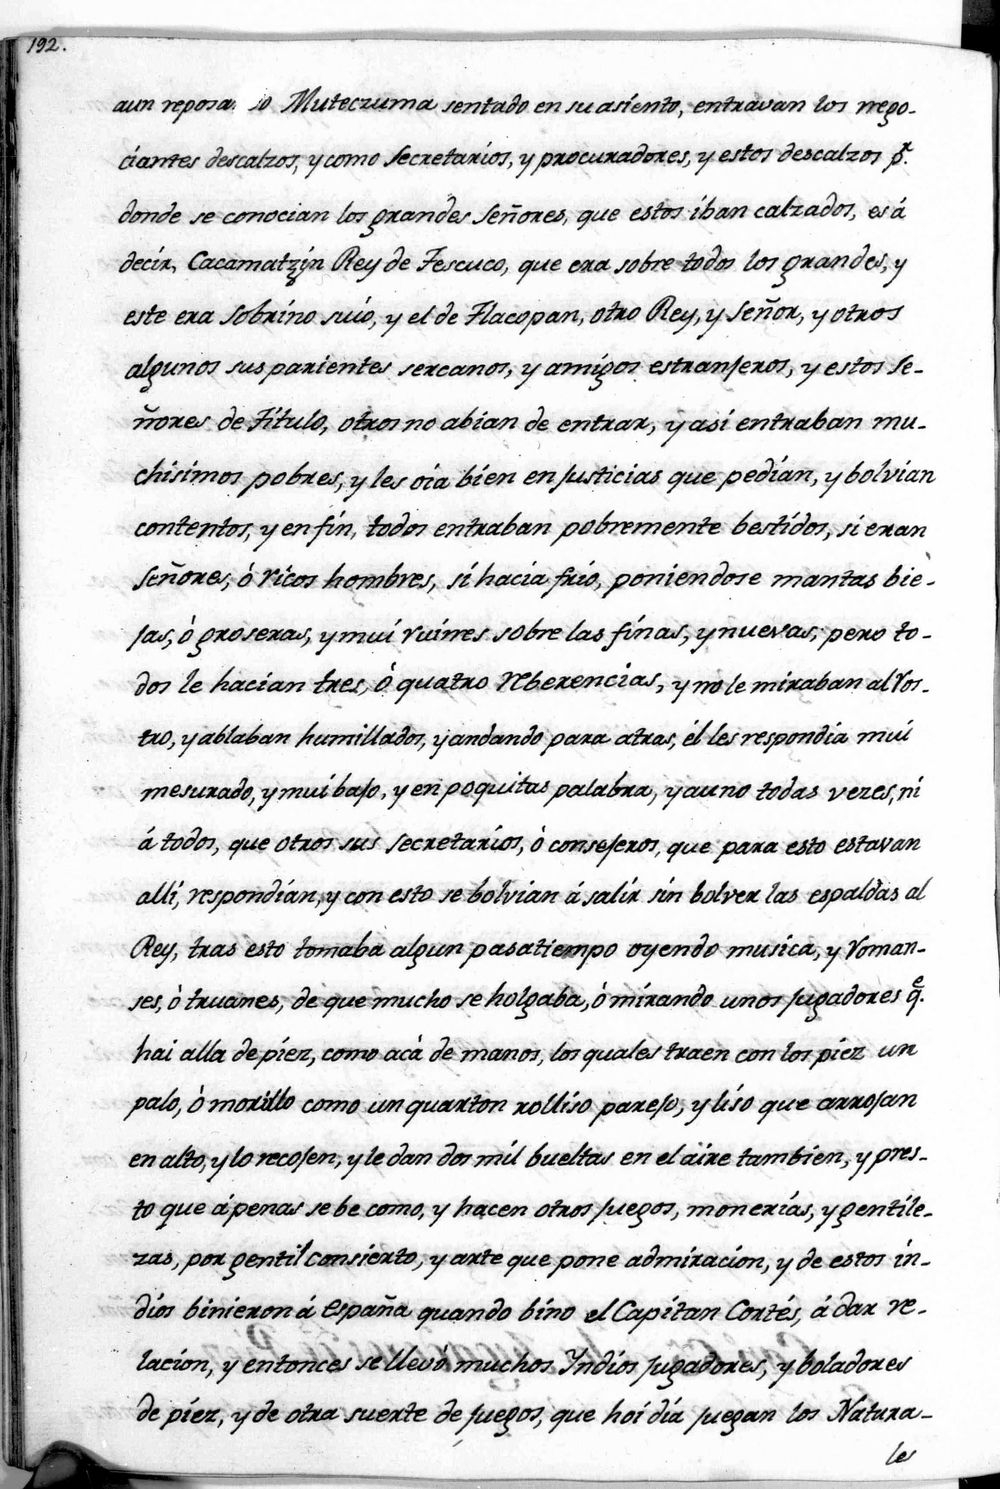 192.
aun reposa so Muteczuma sentado en su asiento, entravan los nego-
ciantes descalzos, y como secretarios, y procuradores, y estos descalzos pr.
donde se conocian los grandes señores, que estos iban calzados, es á
decir, Cacamatzin Rey de Tescuco, que era sobre todos los grandes, y
este era sobrino suio, y el de Tlacopan, otro Rey, y señor, y otros
algunos sus parientes sercanos, y amigos estranjeros, y estos se-
ñores de Titulo, otros no abian de entrar, y asi entraban mu-
chisimos pobres, y les oia bien en justicias que pedian, y bolvian
contentos, y en fin, todos entraban pobremente bestidos, si eran
señores, ó ricos hombres, si hacia frio, poniendose mantas bie-
jas, ò groseras, y mui ruines sobre las finas, y nuevas, pero to-
dos le hacian tres, ò quatro reberencias, y no le miraban al ros-
tro, y ablaban humillados, y andando para atras, él les respondia mui
mesurado, y mui bajo, y en poquitas palabra, y auno todas vezes, ni
á todos, que otros sus secretarios, ò consejeros, que para esto estavan
alli, respondian, y con esto se bolvian á salir sin bolver las espaldas al
Rey, tras esto tomaba algun pasatiempo oyendo musica, y roman-
ses, ò truanes, de que mucho se holgaba, ò mirando unos jugadores qe.
hai alla de piez, como acà de manos, los quales traen con los piez un
palo, ò morillo como un quarton rolliso parejo, y liso que arrojan
en alto, y lo recojen, y le dan dos mil bueltas en el aire tambien, y pres-
to que ápenas se be como, y hacen otros juegos, monerias, y gentile-
zas, por gentil consierto, y arte que pone admiracion, y de estos in-
dios binieron á España quando bino el Capitan Cortés, á dar re-
lacion, y entonces se llevò muchos Yndios jugadores, y boladores
de piez, y de otra suerte de juegos, que hoi dia juegan los Natura-
les